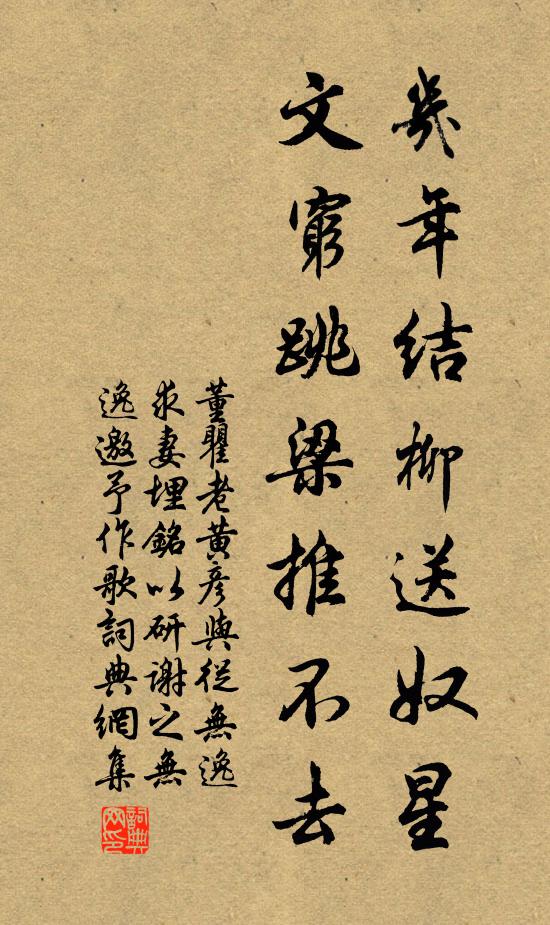 幾年結柳送奴星
文窮跳梁推不去
董瞿老黃彥輿從無逸
求妻埋銘以研謝之無
逸邀予作歌詞典網集
詞典网印